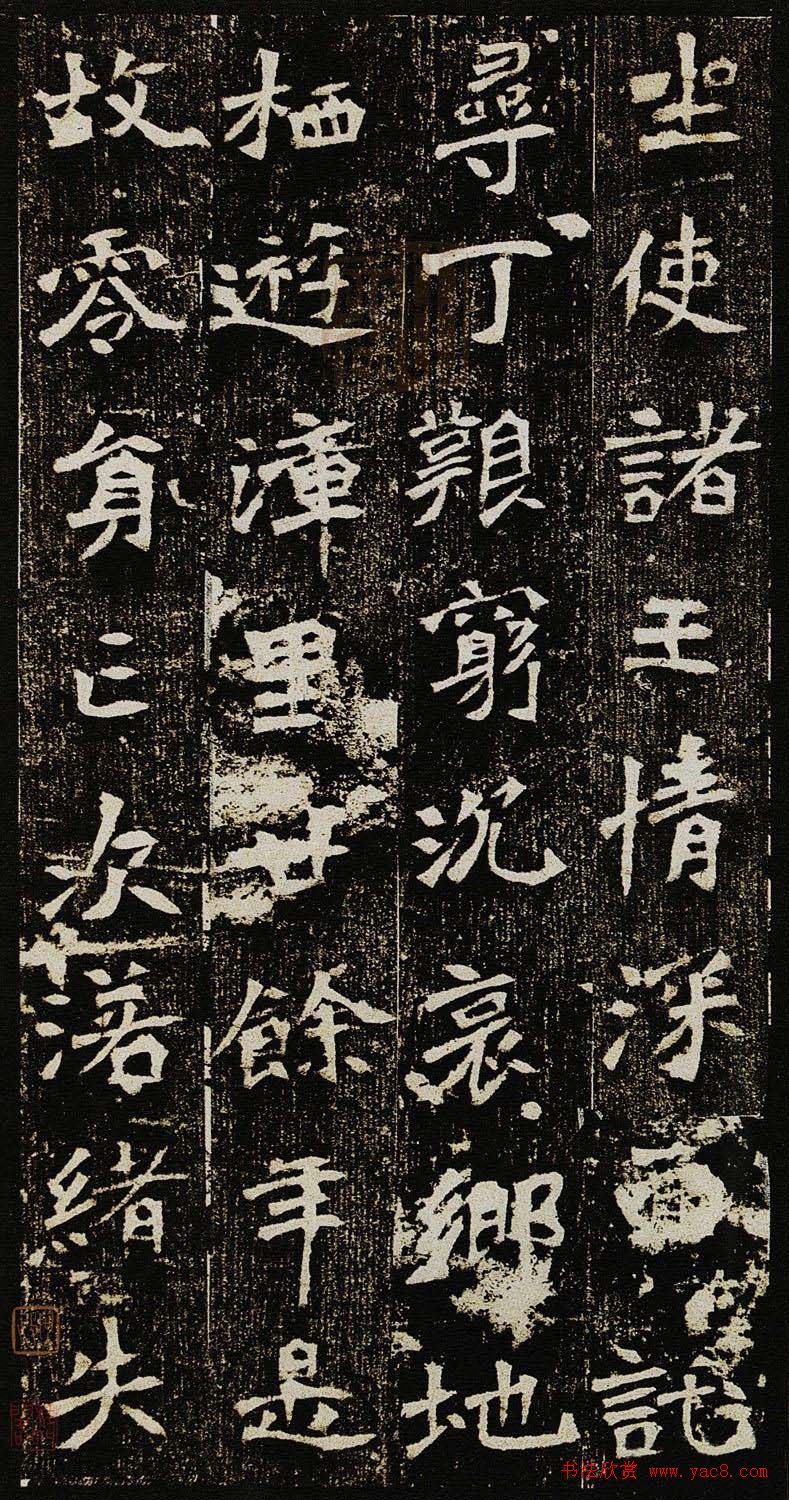 坐使諸王情深託
尋丁艱窮沉哀鄉地
栖遊漳里廿餘年是
故零身亡次落緒失
书法欣赏 www.yac8.com